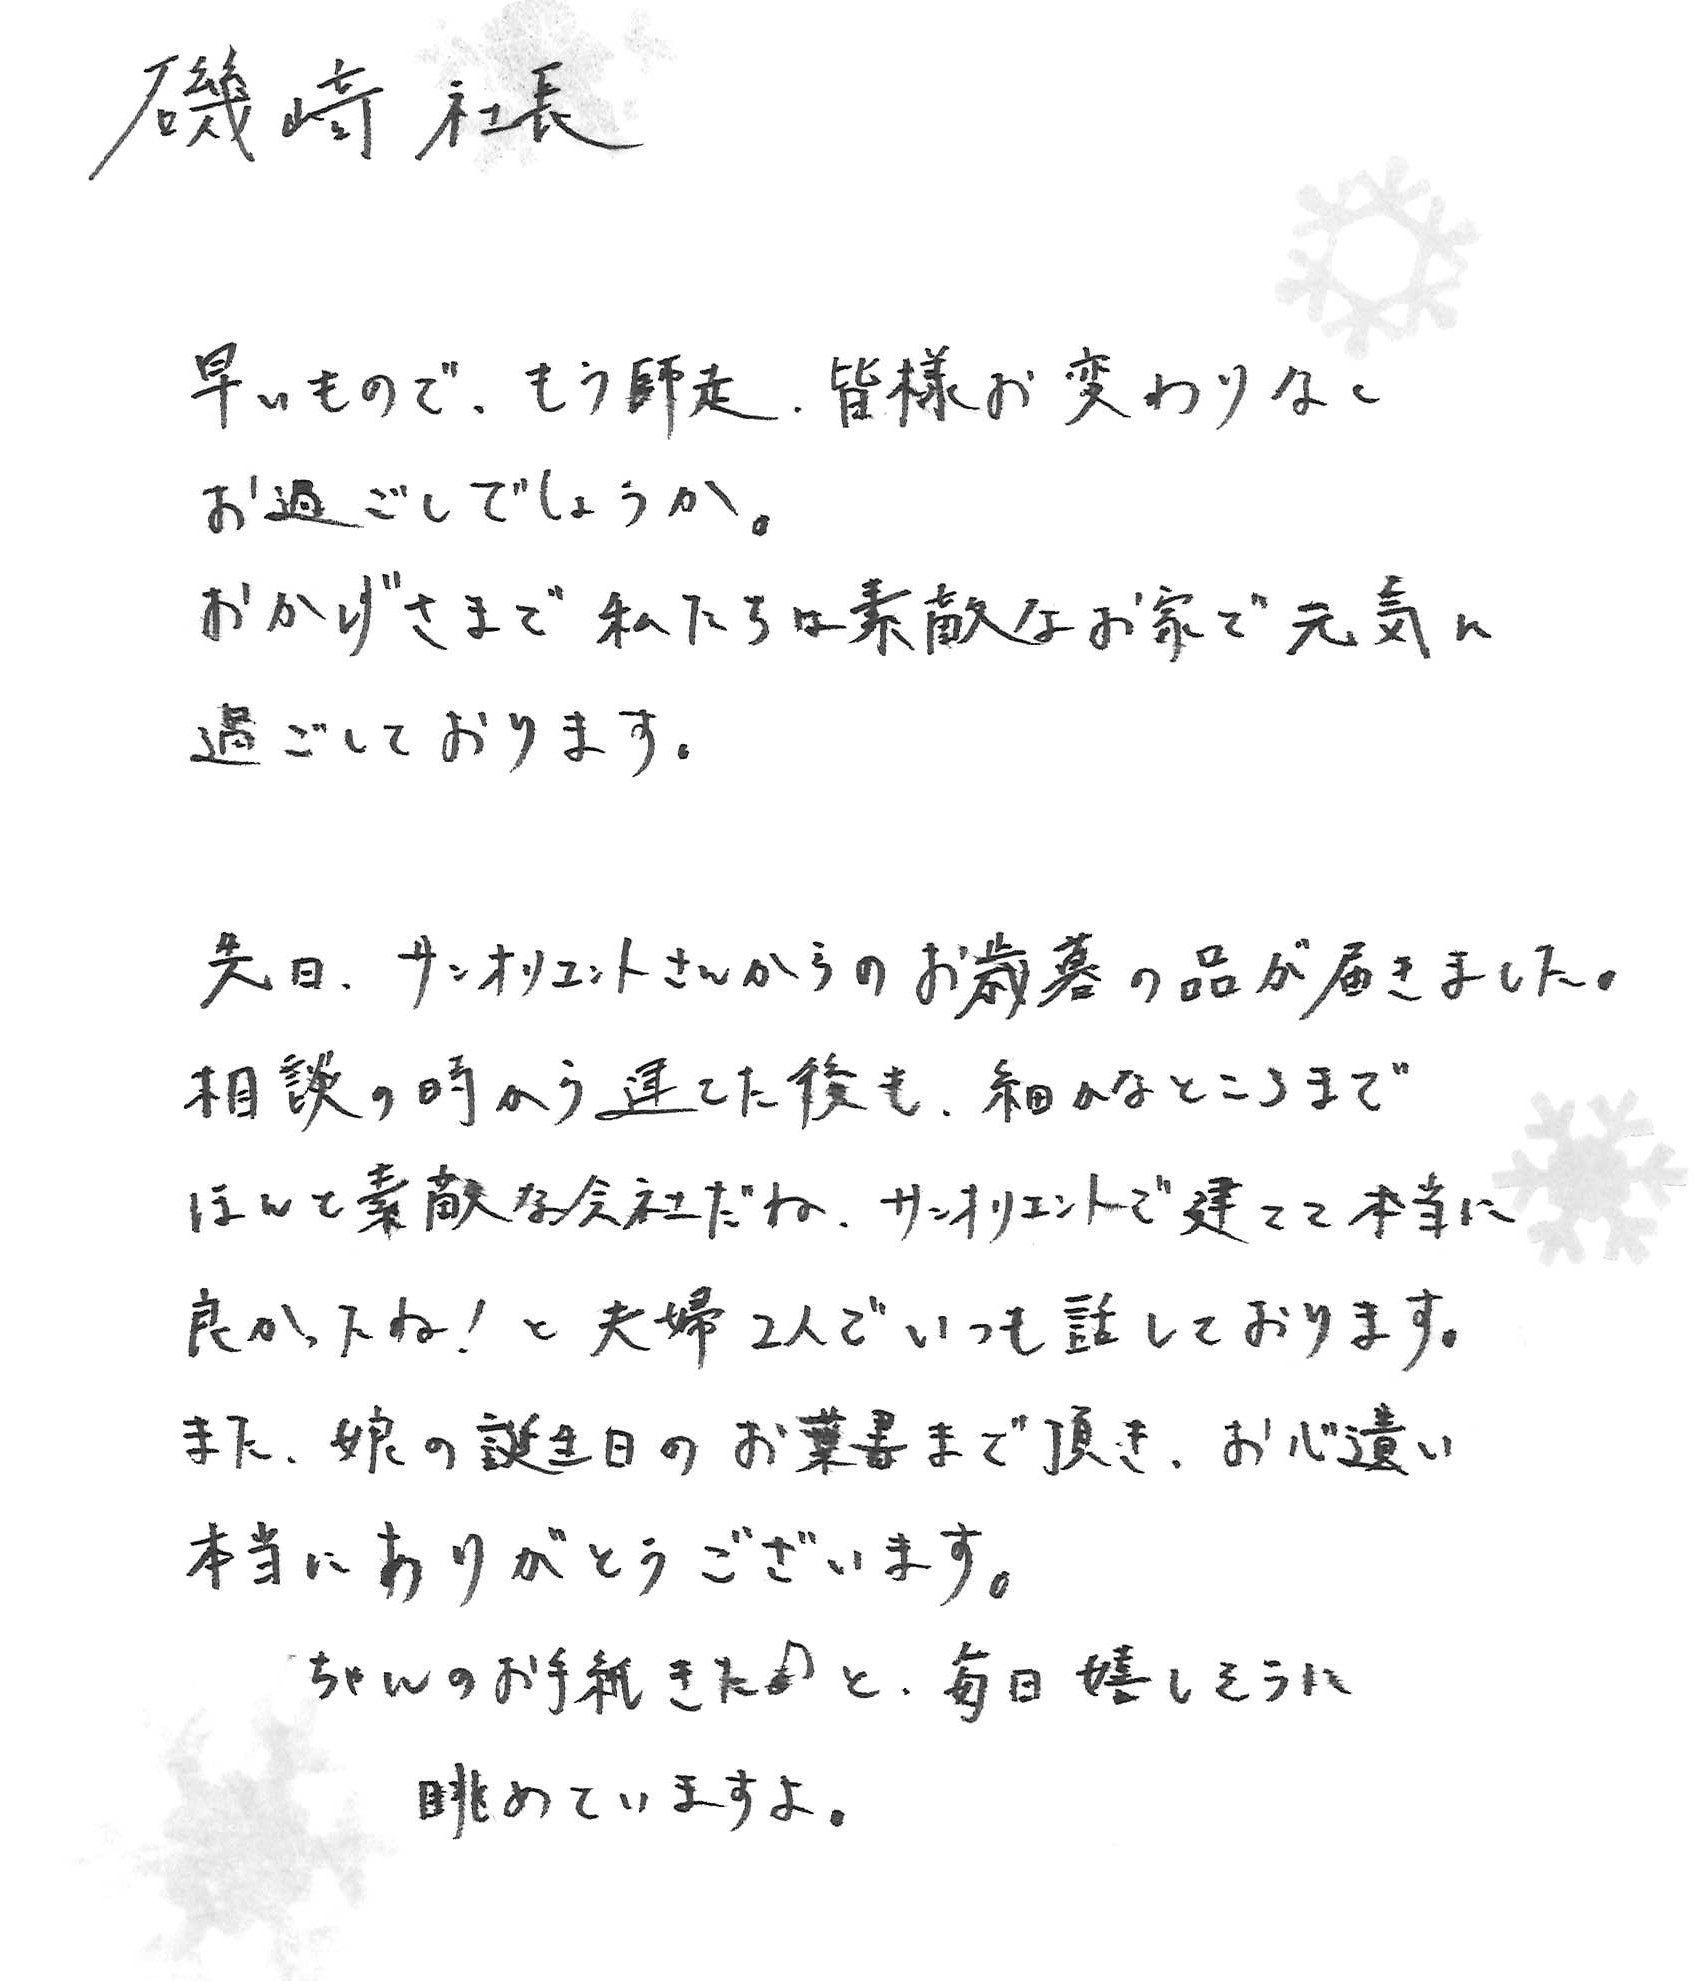 磯崎 社長
早いもので、もう師走、皆様お変わりなく
お過ごしでしょうか。
おかげさまで私たちは素敵なお家で元気に
過ごしております。
先日、サンオリエントさんからのお歳暮の品が届きました。
相談の時から建てた後も、細かなところまで
ほんと素敵な会社だね、サンオリエントで建てて本当に
良かったね！と夫婦2人でいつも話しております。
また、娘の誕生日のお葉書まで頂き、お心遣い
本当にありがとうございます。
ちゃんのお手紙きた♪と、毎日嬉しそうに
眺めていますよ。